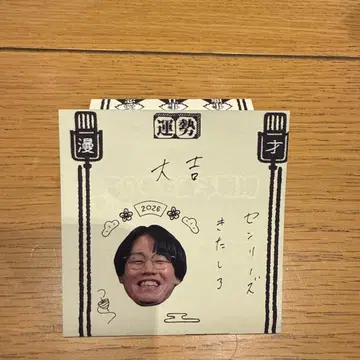 運勢
漫
才
大吉
2026
センリーズ
きたしろ